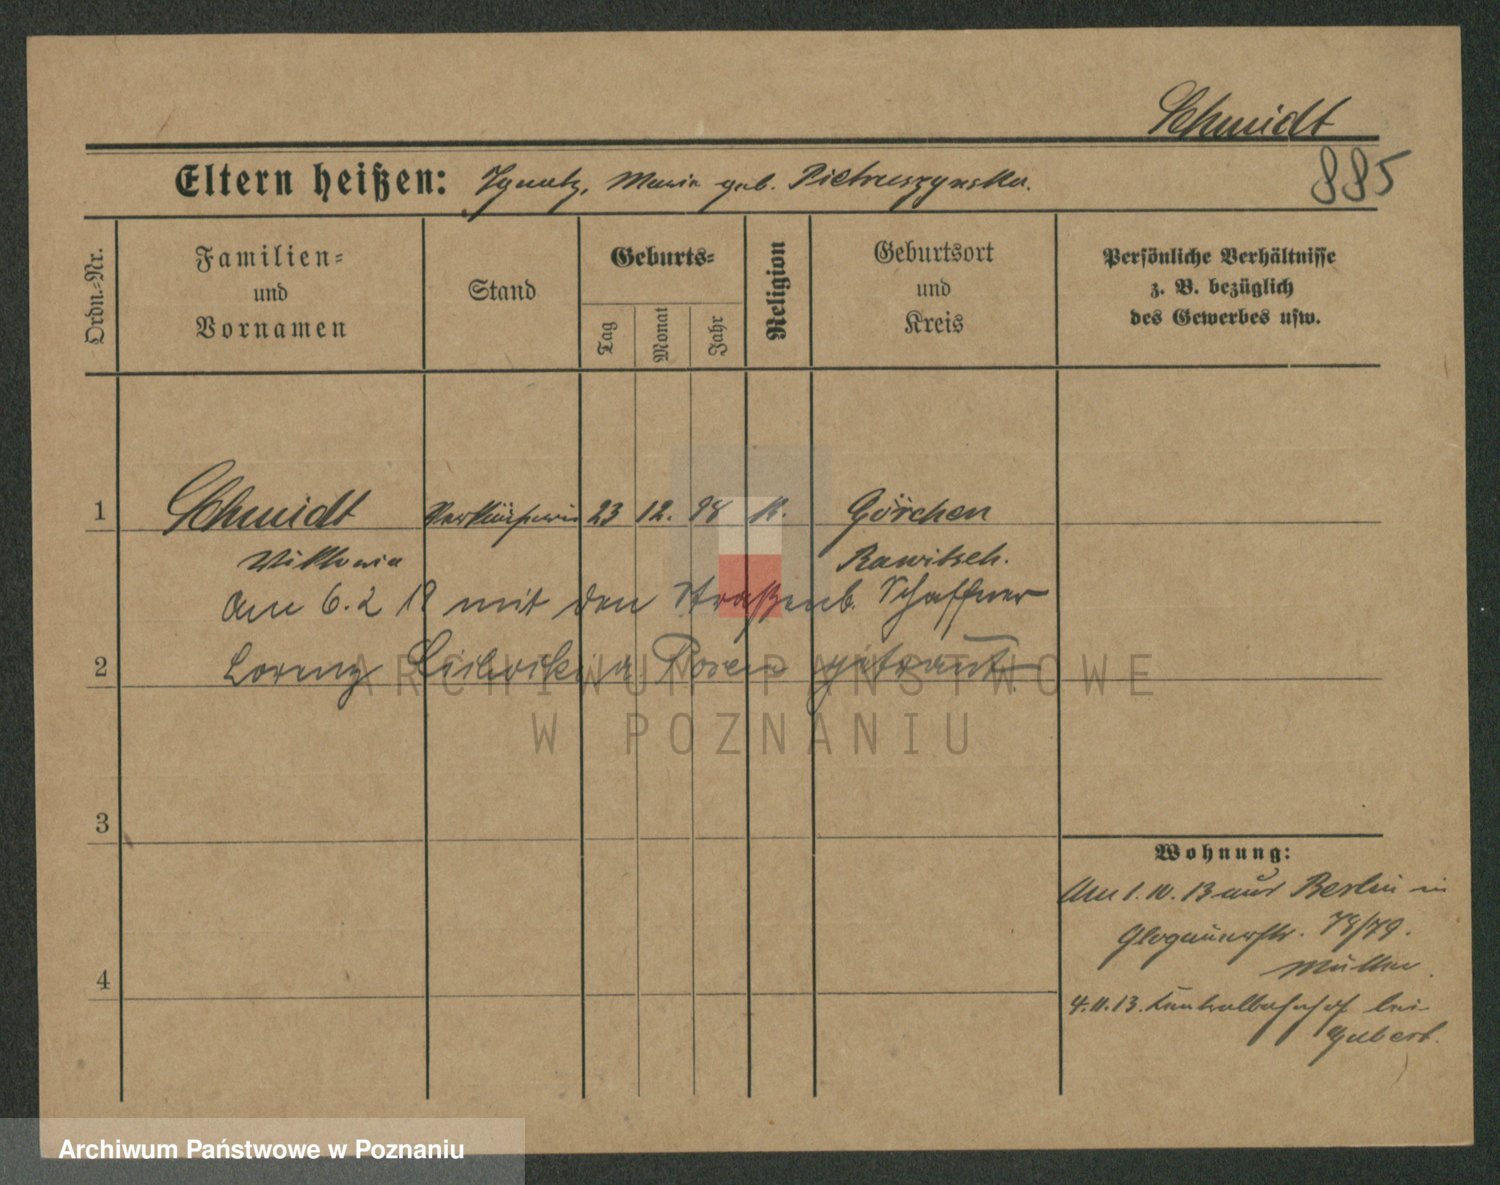 Schmidt
885
Eltern heißen: Ignatz, Maria geb. Pietruszynska.
Ordn.-Nr.
Familien-
und
Vornamen
Stand
Geburts-
Tag
Monat
Jahr
Religion
Geburtsort
und
Kreis
Persönliche Verhältnisse
z. B. bezüglich
des Gewerbes usw.
1 Schmidt Verkäuferin 23 12. 98 k. Görchen
Viktoria Rawitsch.
Am 6. 2 19 mit den Straßenb. Schaffner
2 Lorenz in Posen getraut.
3
Wohnung:
Am 1. 10. 13 aus Berlin in
Glogauerstr. 78/79.
Müller.
4
4. 11. 13. Zentralbahnhof bei
ARCHIWUM PAŃSTWOWE
W POZNANIU
Archiwum Państwowe w Poznaniu